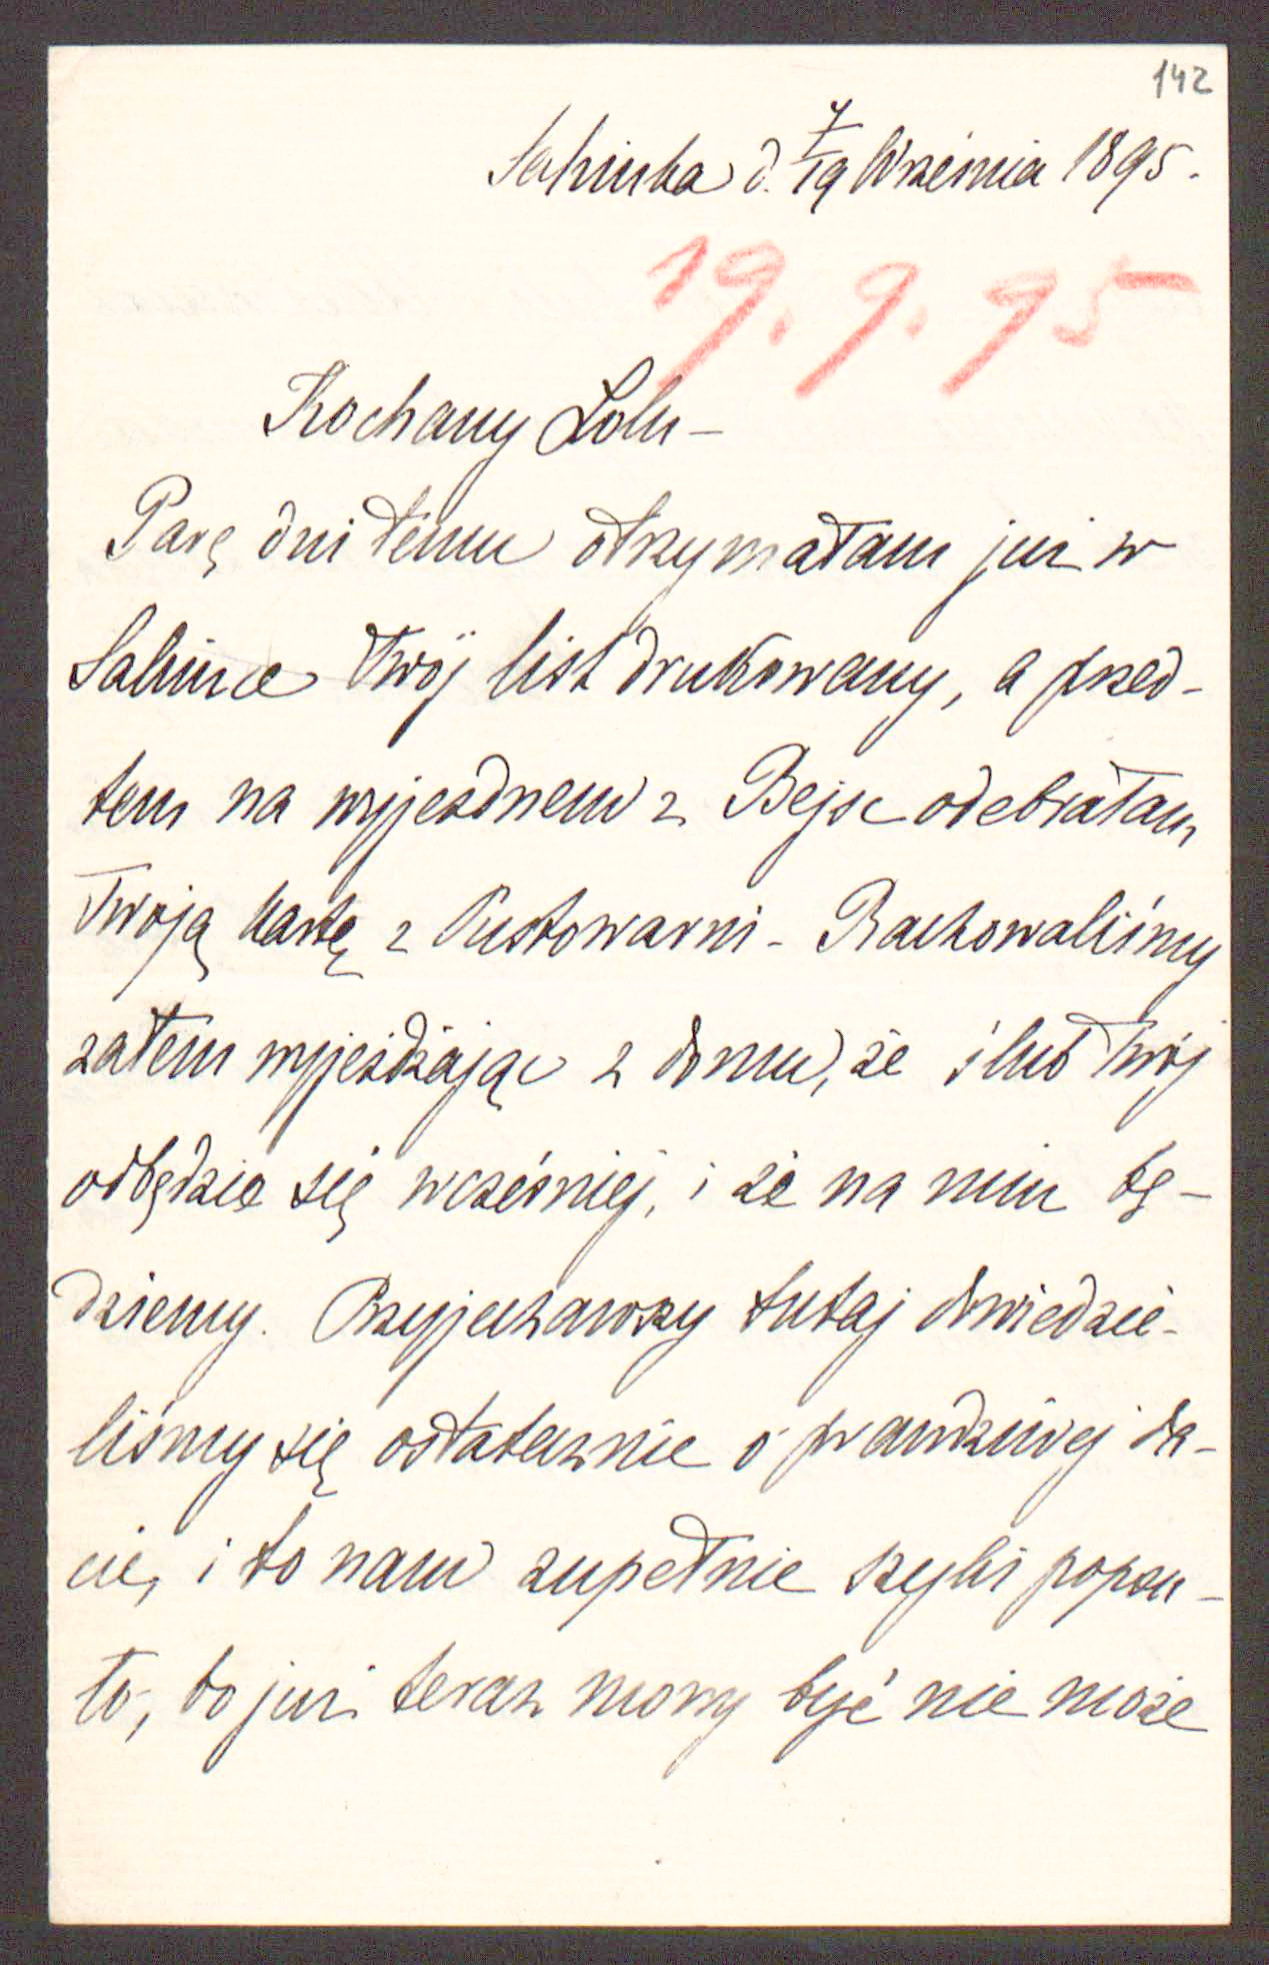 142
Sahinka d. 7/19 Września 1895.
19. 9. 95
Kochany Lolu –
Parę dni temu otrzymałam już w
Sahince Twój list drukowany, a przed-
tem na wyjezdnem z Bejsc odebrałam
Twoją kartę z Pustowarni – Rachowaliśmy
zatem wyjeżdżając z domu, że ślub Twój
odbędzie się wcześniej, i że na nim bę-
dziemy. Przyjechawszy tutaj dowiedzie-
liśmy się ostatecznie o prawdziwej da-
cie, i to nam zupełnie szyki popsu-
ło, bo już teraz mowy być nie może